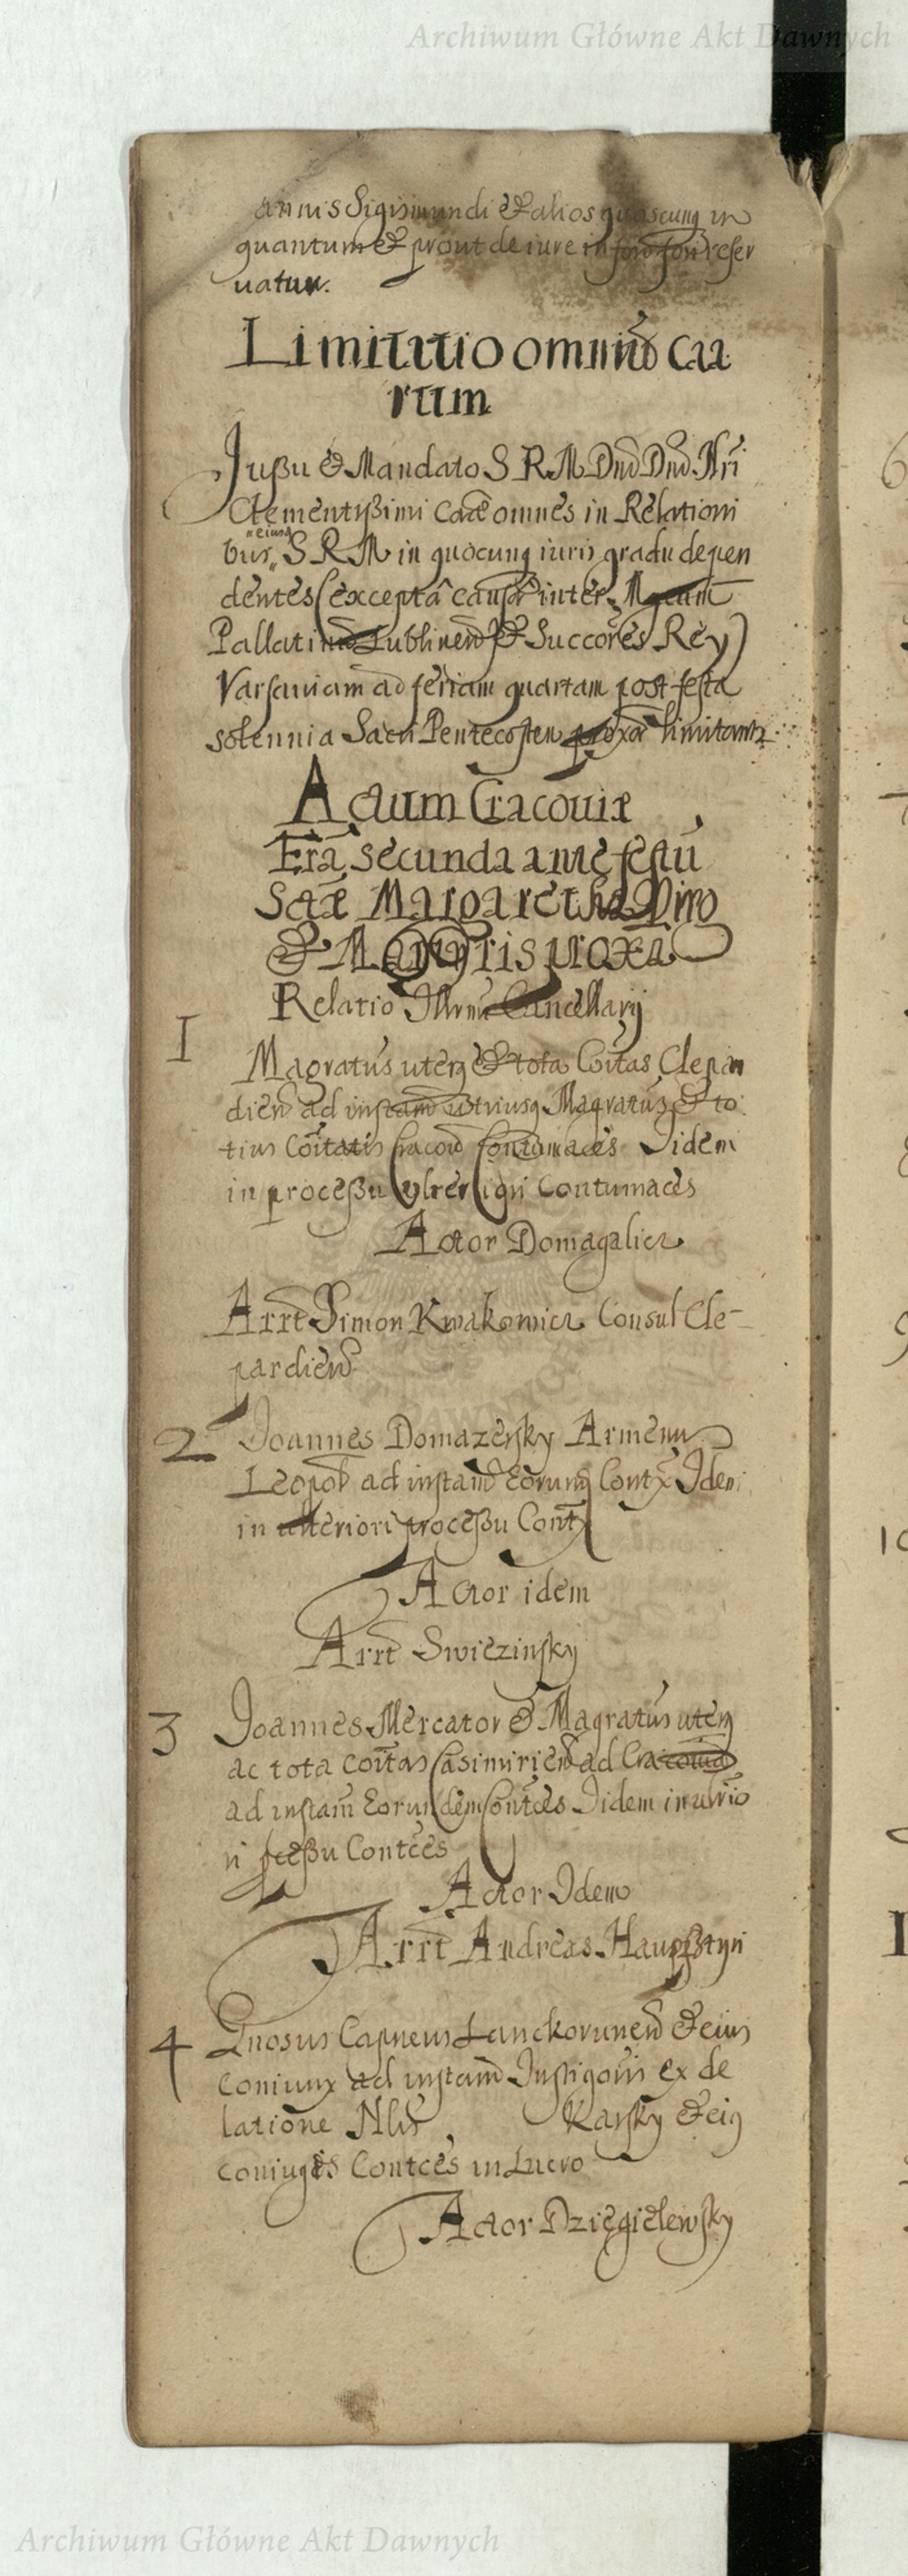 Archiwum Główne Akt Dawnych
annis Sigismundi & alios quoscunq in
quantum & prout de iure in reser
uatur.
Limitatio omniũ Cau
rum
Jussu & Mandato S R M Dnd Dnd Nri
Clementissimi Cae omnes in Relationi
bus eiusd S R M in quocunq iuris gradu depen
dentes (exceptâ causâ inter Mgcum
Pallatinũ Lublinen & Succores Rey)
Varsauiam ad feriam quartam post festa
solennia Sacri Pentecosten proxâ limitantr
Actum Cracouiæ
Fria secunda ante festũ
Sctæ Margarethæ Virg
& Martyris proxa
Relatio Illrmi Cancellarij
1
Magratus uterq & tota Coitas Clepar
dien ad instam utriusq Magratus & to
tius Coitatis Cracou Contumaces Iidem
in processu Contumaces
Actor Domagalicz
Arrt Simon Kwakowicz Consul Cle-
pardien
2 Joannes Domazersky Armenus
Leopol ad instam Eorund Cont Idem
in ulteriori processu Cont
Actor idem
Arrt Swiezinsky
3 Joannes Mercator & Magratus uterq
ac tota Coitas Casimirien ad Cracouia
ad instam Eorundem Contces Iidem in ultrio
ri pcessu Contces
Actor Idem
Arrt Andreas Hauppstyn
4 Gnosus Capneus Lanckorunen & eius
Coniunx ad instam Instigoris ex de
latione Nlis Karsky & eiq
coniugis Contces in Lucro
Actor Dzięgielewsky
Archiwum Główne Akt Dawnych